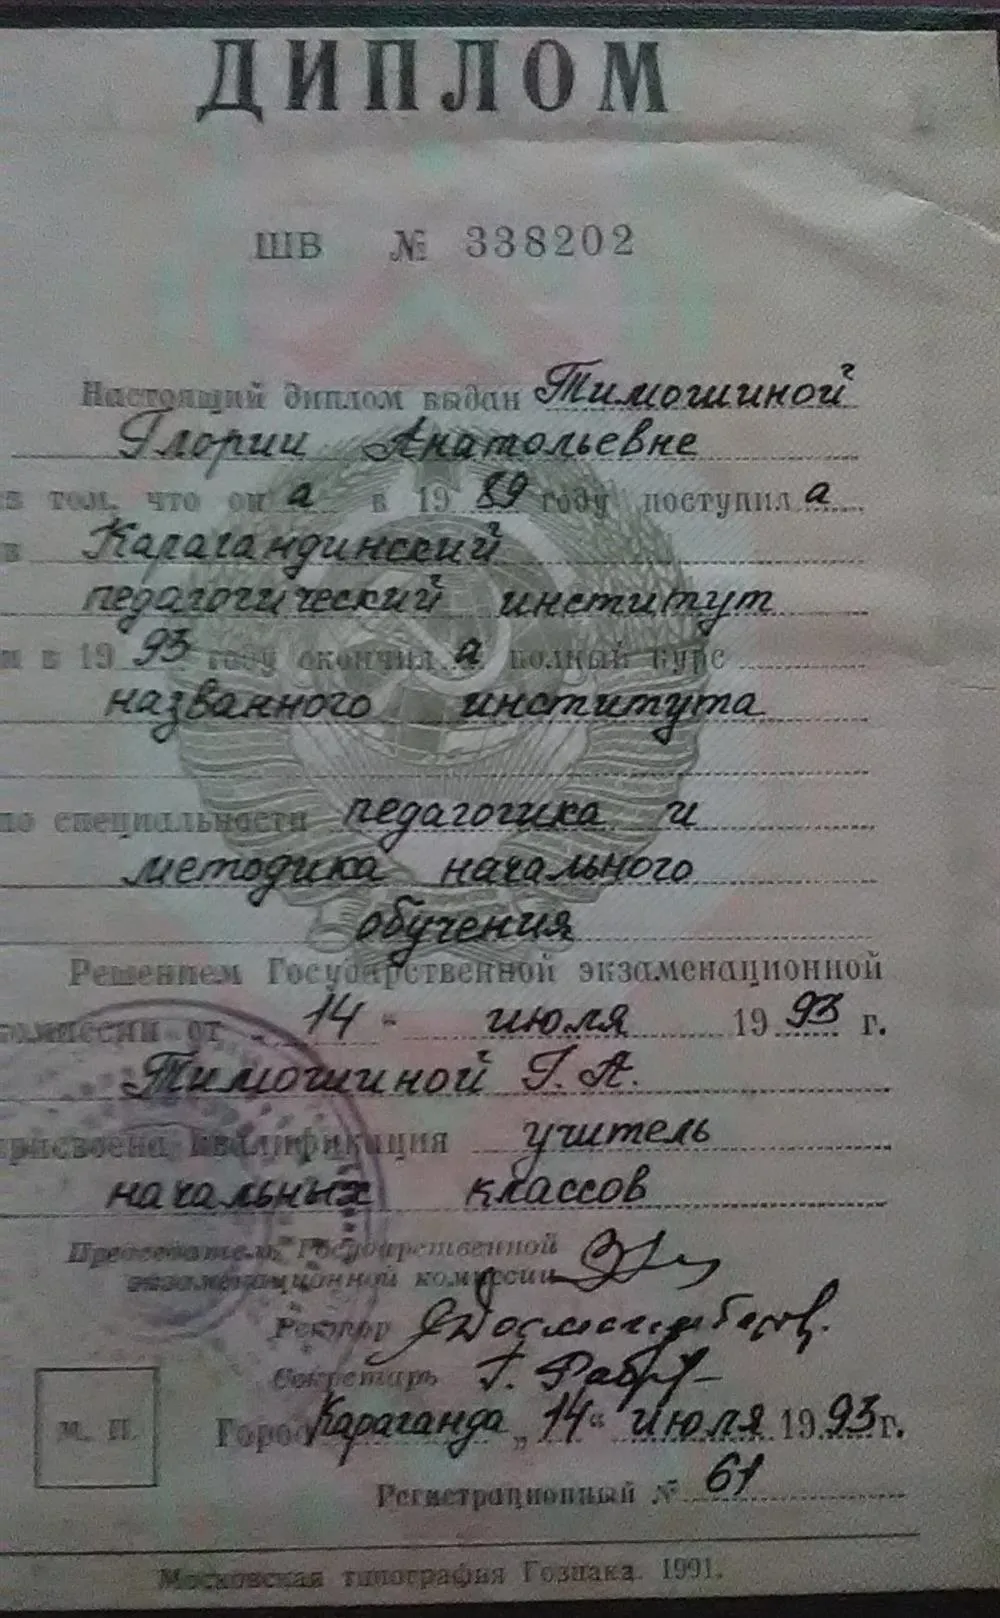 ДИПЛОМ
ШВ № 338202
Настоящий диплом выдан Тимошиной
Глории Анатольевне
в том, что он а в 19 89 году поступил а
в Карагандинский
педагогический институт
и в 19 93 году окончил а полный курс
названного института
по специальности педагогика и
методика начального
обучения
Решением Государственной экзаменационной
комиссии от „ 14 " июля 19 93 г.
Тимошиной Г. А.
присвоена квалификация учитель
начальных классов
Председатель Государственной
экзаменационной комиссии
Ректор
Секретарь
М. П.
Город Караганда „ 14 " июля 19 93 г.
Регистрационный № 61
Московская типография Гознака. 1991.